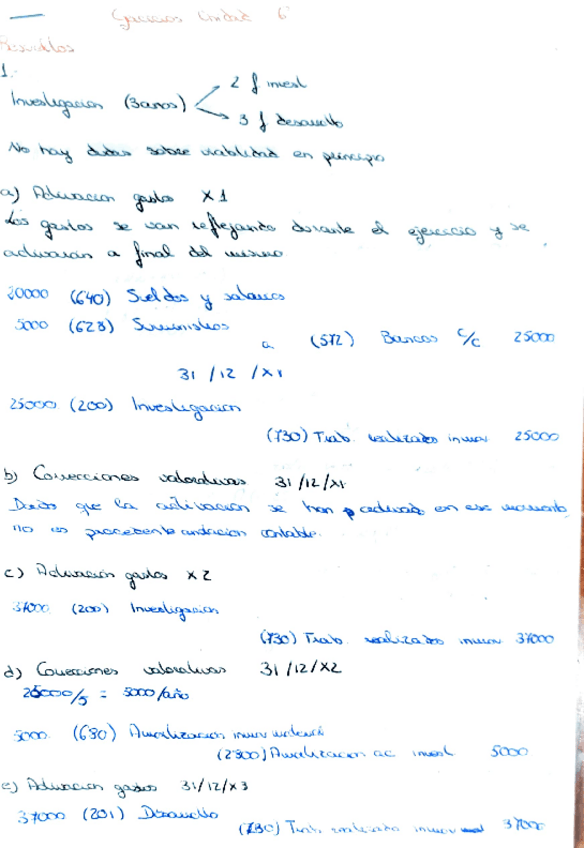 Ejercicios Unidad 6
Resueltos
1.
2 f invest
Investigacion (3años)
3 f desarrollo
No hay dudas sobre viabilidad en principio
a) Activacion gastos X1
Los gastos se van reflejando durante el ejercicio y se
activarán a final del mismo
20000 (640) Sueldos y salarios
5000 (628) Suministros
a (572) Bancos c/c 25000
31 /12 /X1
25000 (200) Investigacion
(730) Trab. realizados inmov 25000
b) Correcciones valorativas 31/12/X1
Dado que la activacion se han producido en ese momento
no es procedente anotacion contable.
c) Activacion gastos X2
37000 (200) Investigacion
(730) Trab. realizados inmov 37000
d) Correcciones valorativas 31/12/X2
25000/5 = 5000/año
5000 (680) Amortizacion inmov
(2800) Amortizacion ac invest 5000
e) Activacion gastos 31/12/X3
37000 (201) Desarrollo
(730) Trab. realizados inmov 37000